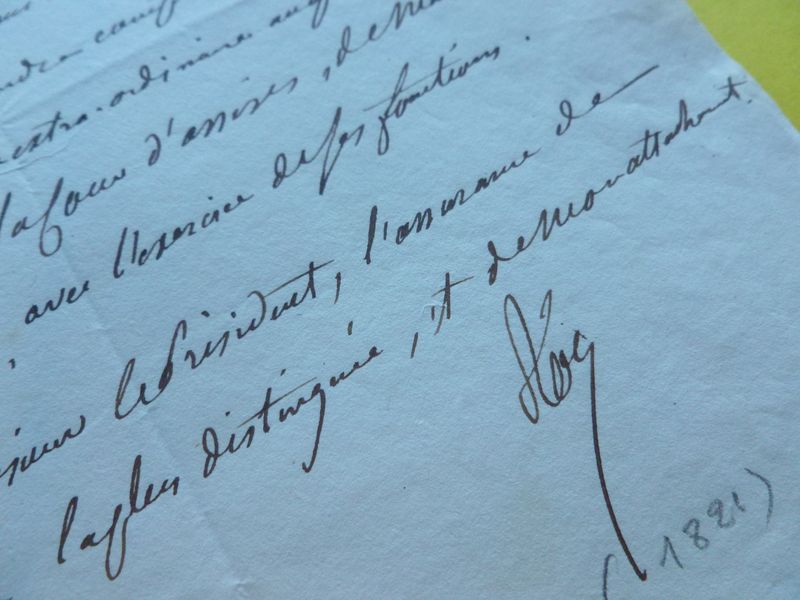 extra-ordinaire
la Cour d'assises, de
avec l'exercice de ses fonctions.
le Président, l'assurance de
la plus distinguée, et de mon attachement.
Roy
(1821)